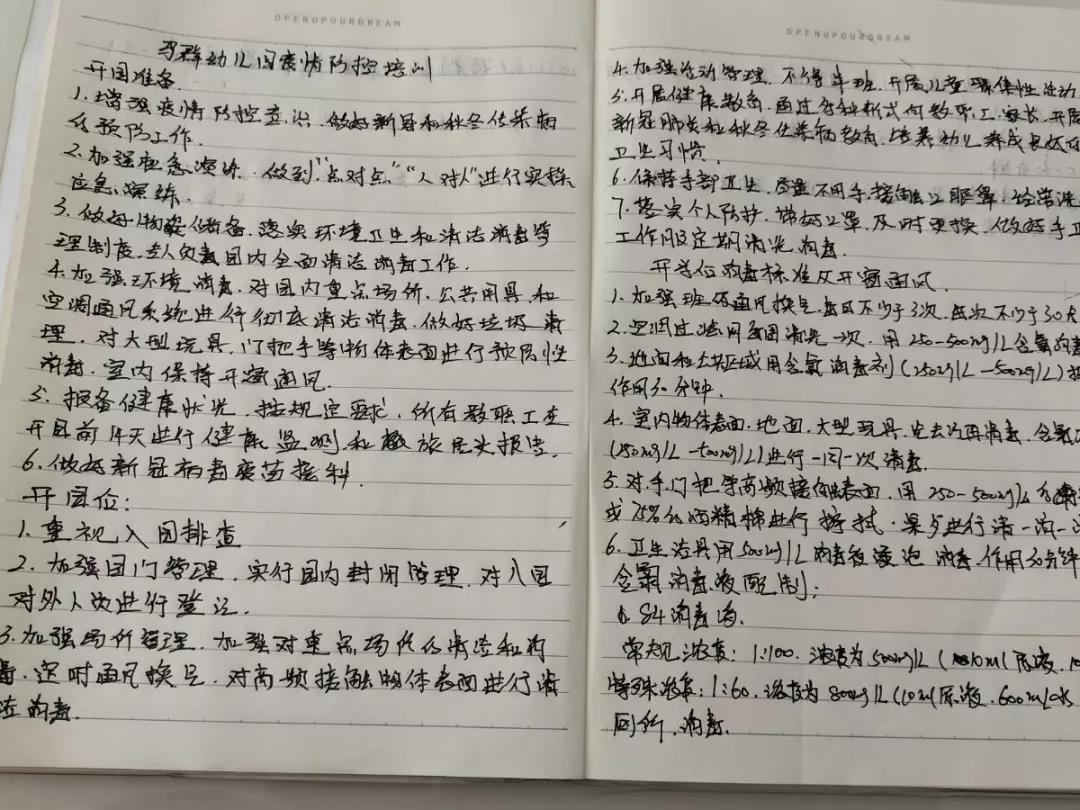 OPENUPOURDREAM
群幼儿园疫情防控培训
开园准备
1. 增强疫情防控意识,做好新冠和秋冬传染病
的预防工作.
2. 加强应急演练,做到"点对点""人对人"进行实操
应急演练.
3. 做好物资储备,落实环境卫生和清洁消毒管
理制度,专人负责园内全面清洁消毒工作.
4. 加强环境消毒,对园内重点场所,公共用具,和
空调通风系统进行彻底清洁消毒,做好垃圾清
理,对大型玩具,门把手等物体表面进行预防性
消毒,室内保持开窗通风.
5. 报备健康状况,按规定要求,所有教职工在
开园前14天进行健康监测和旅居史报告.
6. 做好新冠病毒疫苗接种.
开园位:
1. 重视入园排查
2. 加强园门管理,实行园内封闭管理,对入园
对外人次进行登记.
3. 加强场所管理,加强对重点场所的清洁和消
毒,定时通风换气,对高频接触物体表面进行清
洁消毒.
OPENUPOURDREAM
4. 加强活动管理,不得串班,开展儿童聚集性活动
5. 开展健康教育,通过各种形式向教职工,家长,开展
新冠肺炎和秋冬传染病教育,培养幼儿养成良好的
卫生习惯.
6. 保持手部卫生,尽量不用手接触口眼鼻,经常洗
7. 落实个人防护,带好口罩,及时更换,做好手卫
工作服定期清洗消毒.
开学位消毒标准及开窗通风.
1. 加强班级通风换气,每日不少于3次,每次不少于30
2. 空调过滤网每周清洗一次,用250-500mg/L含氯消毒
3. 地面和公共区域用含氯消毒剂(250mg/L-500mg/L)
作用30分钟.
4. 室内物体表面,地面,大型玩具,先去污再消毒,含氯
(250mg/L-500mg/L)进行一周一次消毒.
5. 对手门把等高频接触表面,用250-500mg/L含
或75%的酒精棉进行擦拭,桌子进行清一消一清
6. 卫生洁具用500mg/L消毒液浸泡消毒,作用30分钟
含氯消毒液配制:
84消毒液.
常规浓度:1:100.浓度为500mg/L(10ml原液.
特殊浓度:1:60.浓度为800mg/L(10ml原液.600ml水
厕所.消毒.